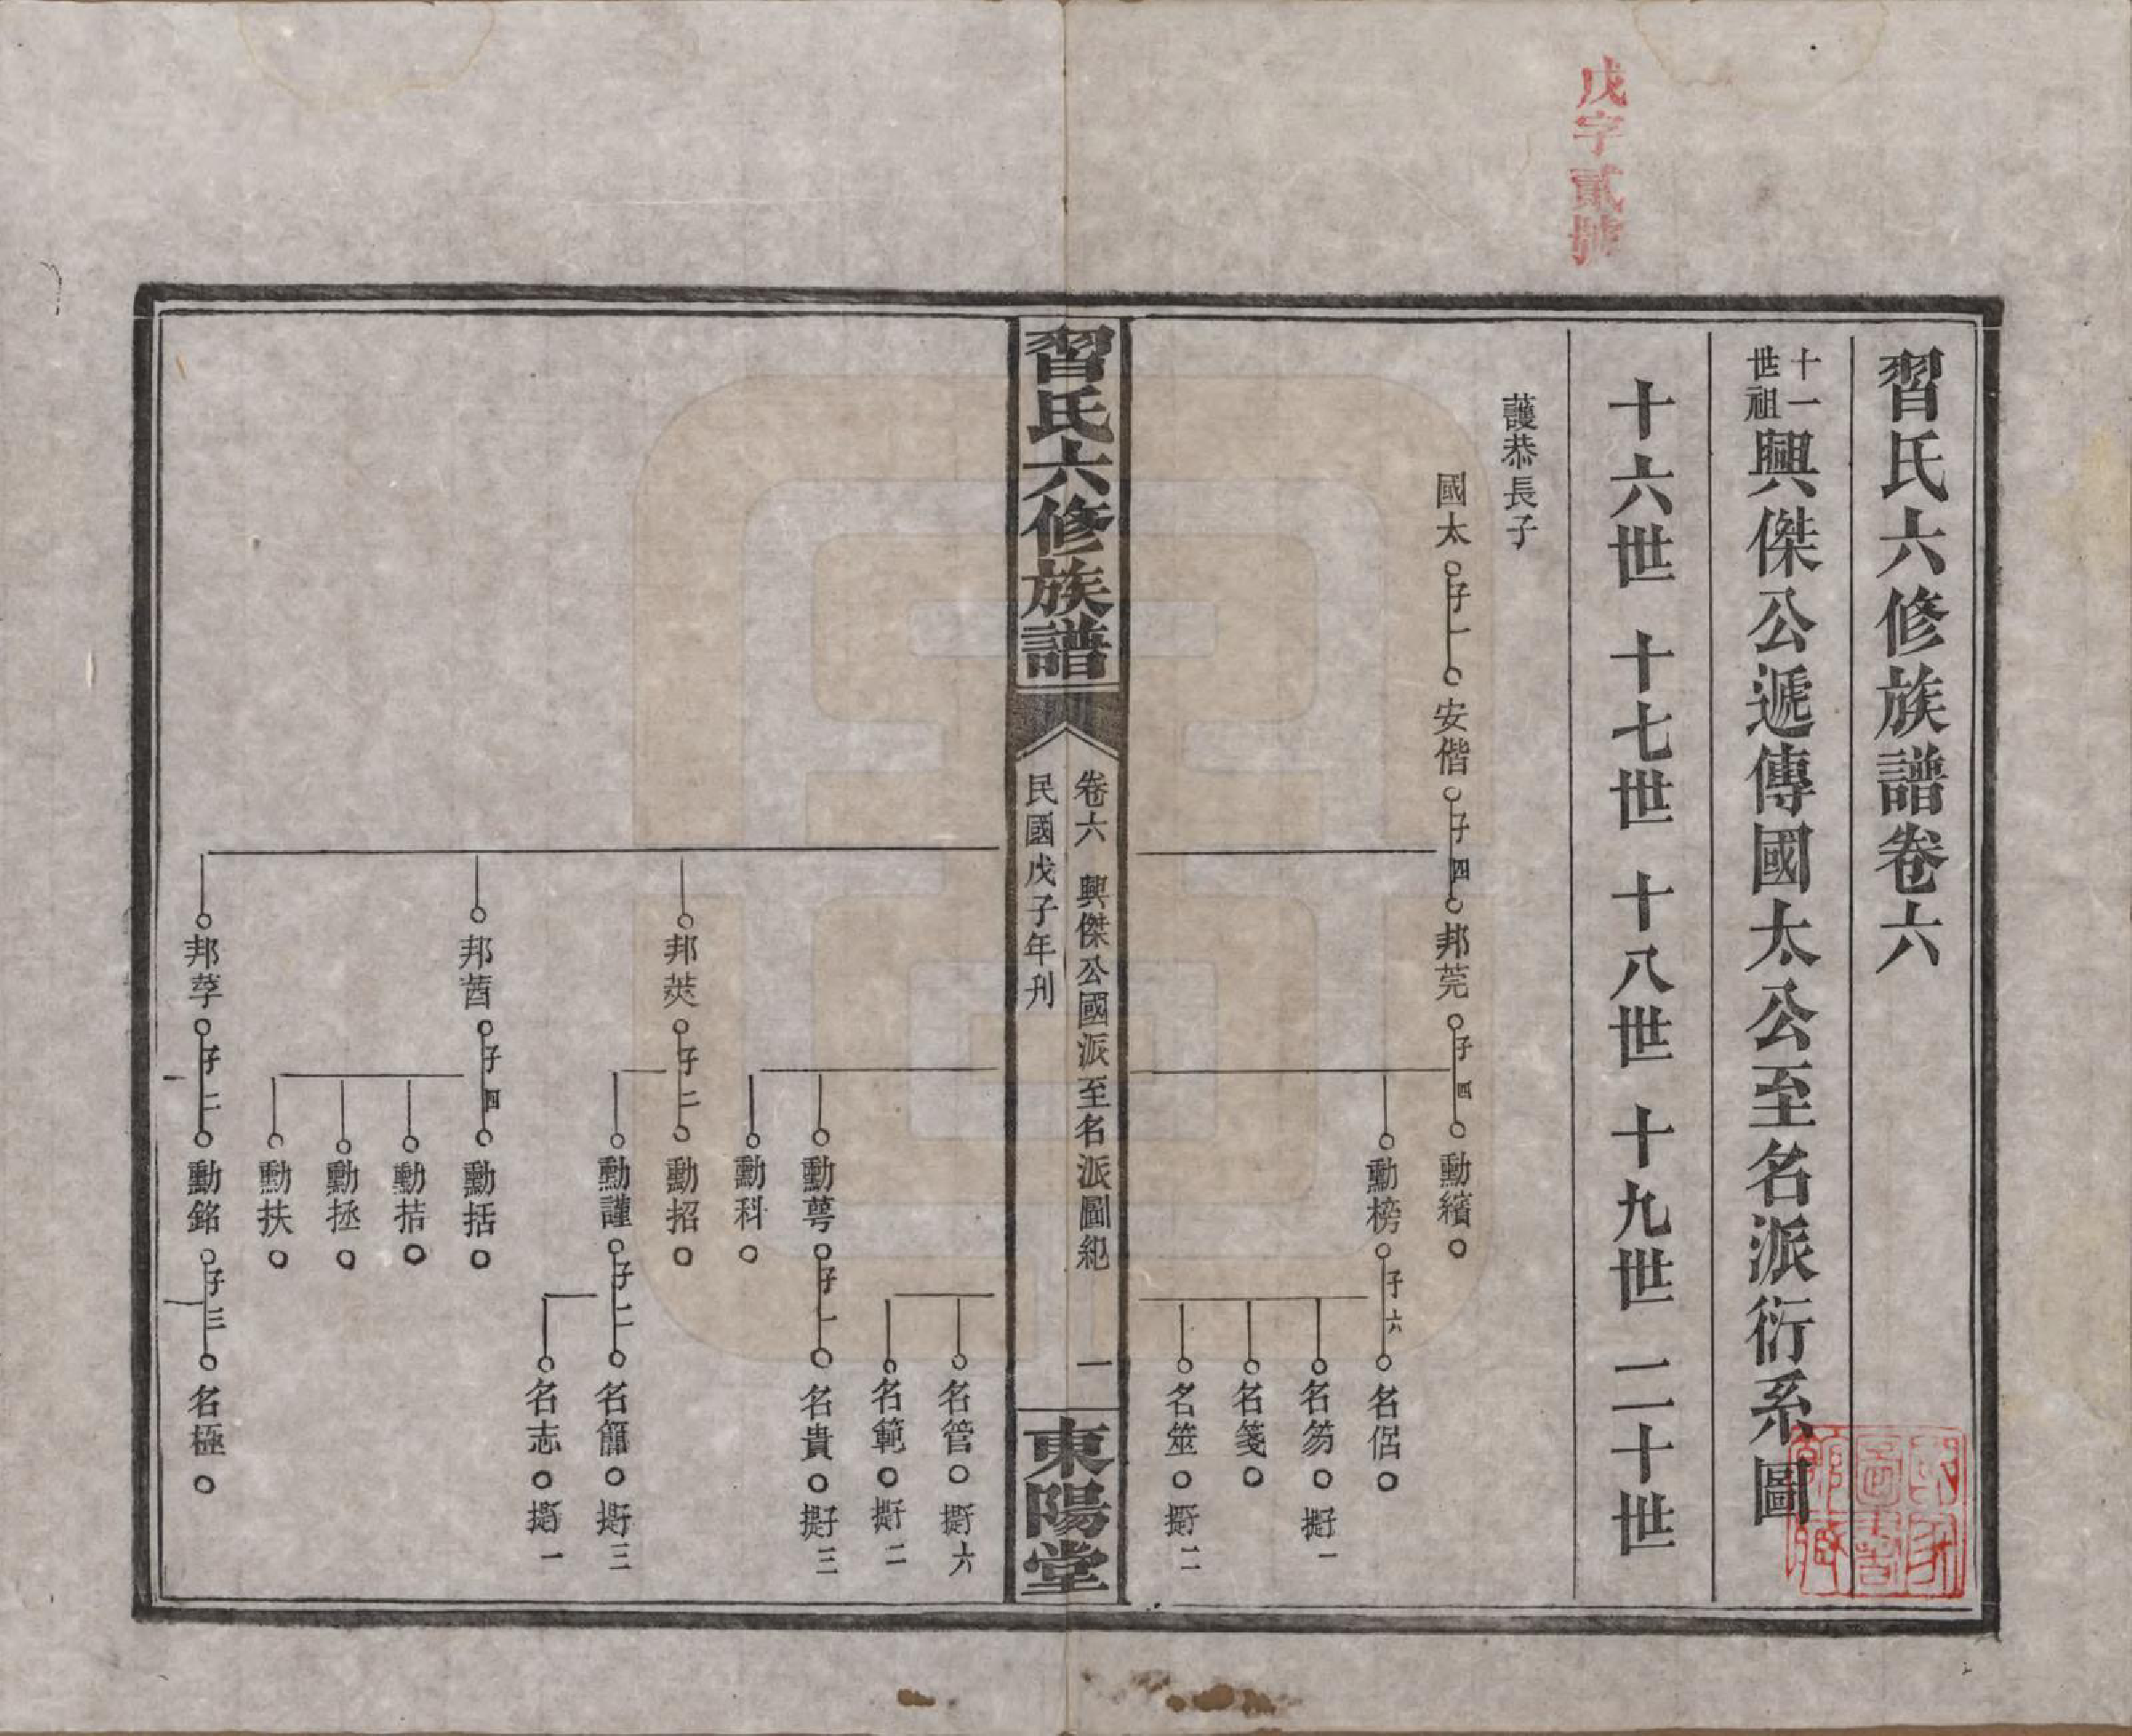 戊字貳號
習氏六修族譜卷六
十一世祖興傑公遞傳國太公至名派衍系圖
十六世 十七世 十八世 十九世 二十世
護恭長子
國太 子一 安偕 子四 邦莞 子四 勳繽
勳榜 子六 名侶
名笏 撫子一
名箋
名筮 撫子二
習氏六修族譜
卷六 興傑公國派至名派圖紀 一
民國戊子年刊
東陽堂
名管 撫子六
名範 撫子二
勳萼 子一 名貴 撫子三
勳科
邦莢 子二 勳招
勳謹 子二 名簫 撫子三
名志 撫子一
邦莤 子四 勳括
勳拮
勳拯
勳扶
邦莩 子二 勳銘 子三 名極